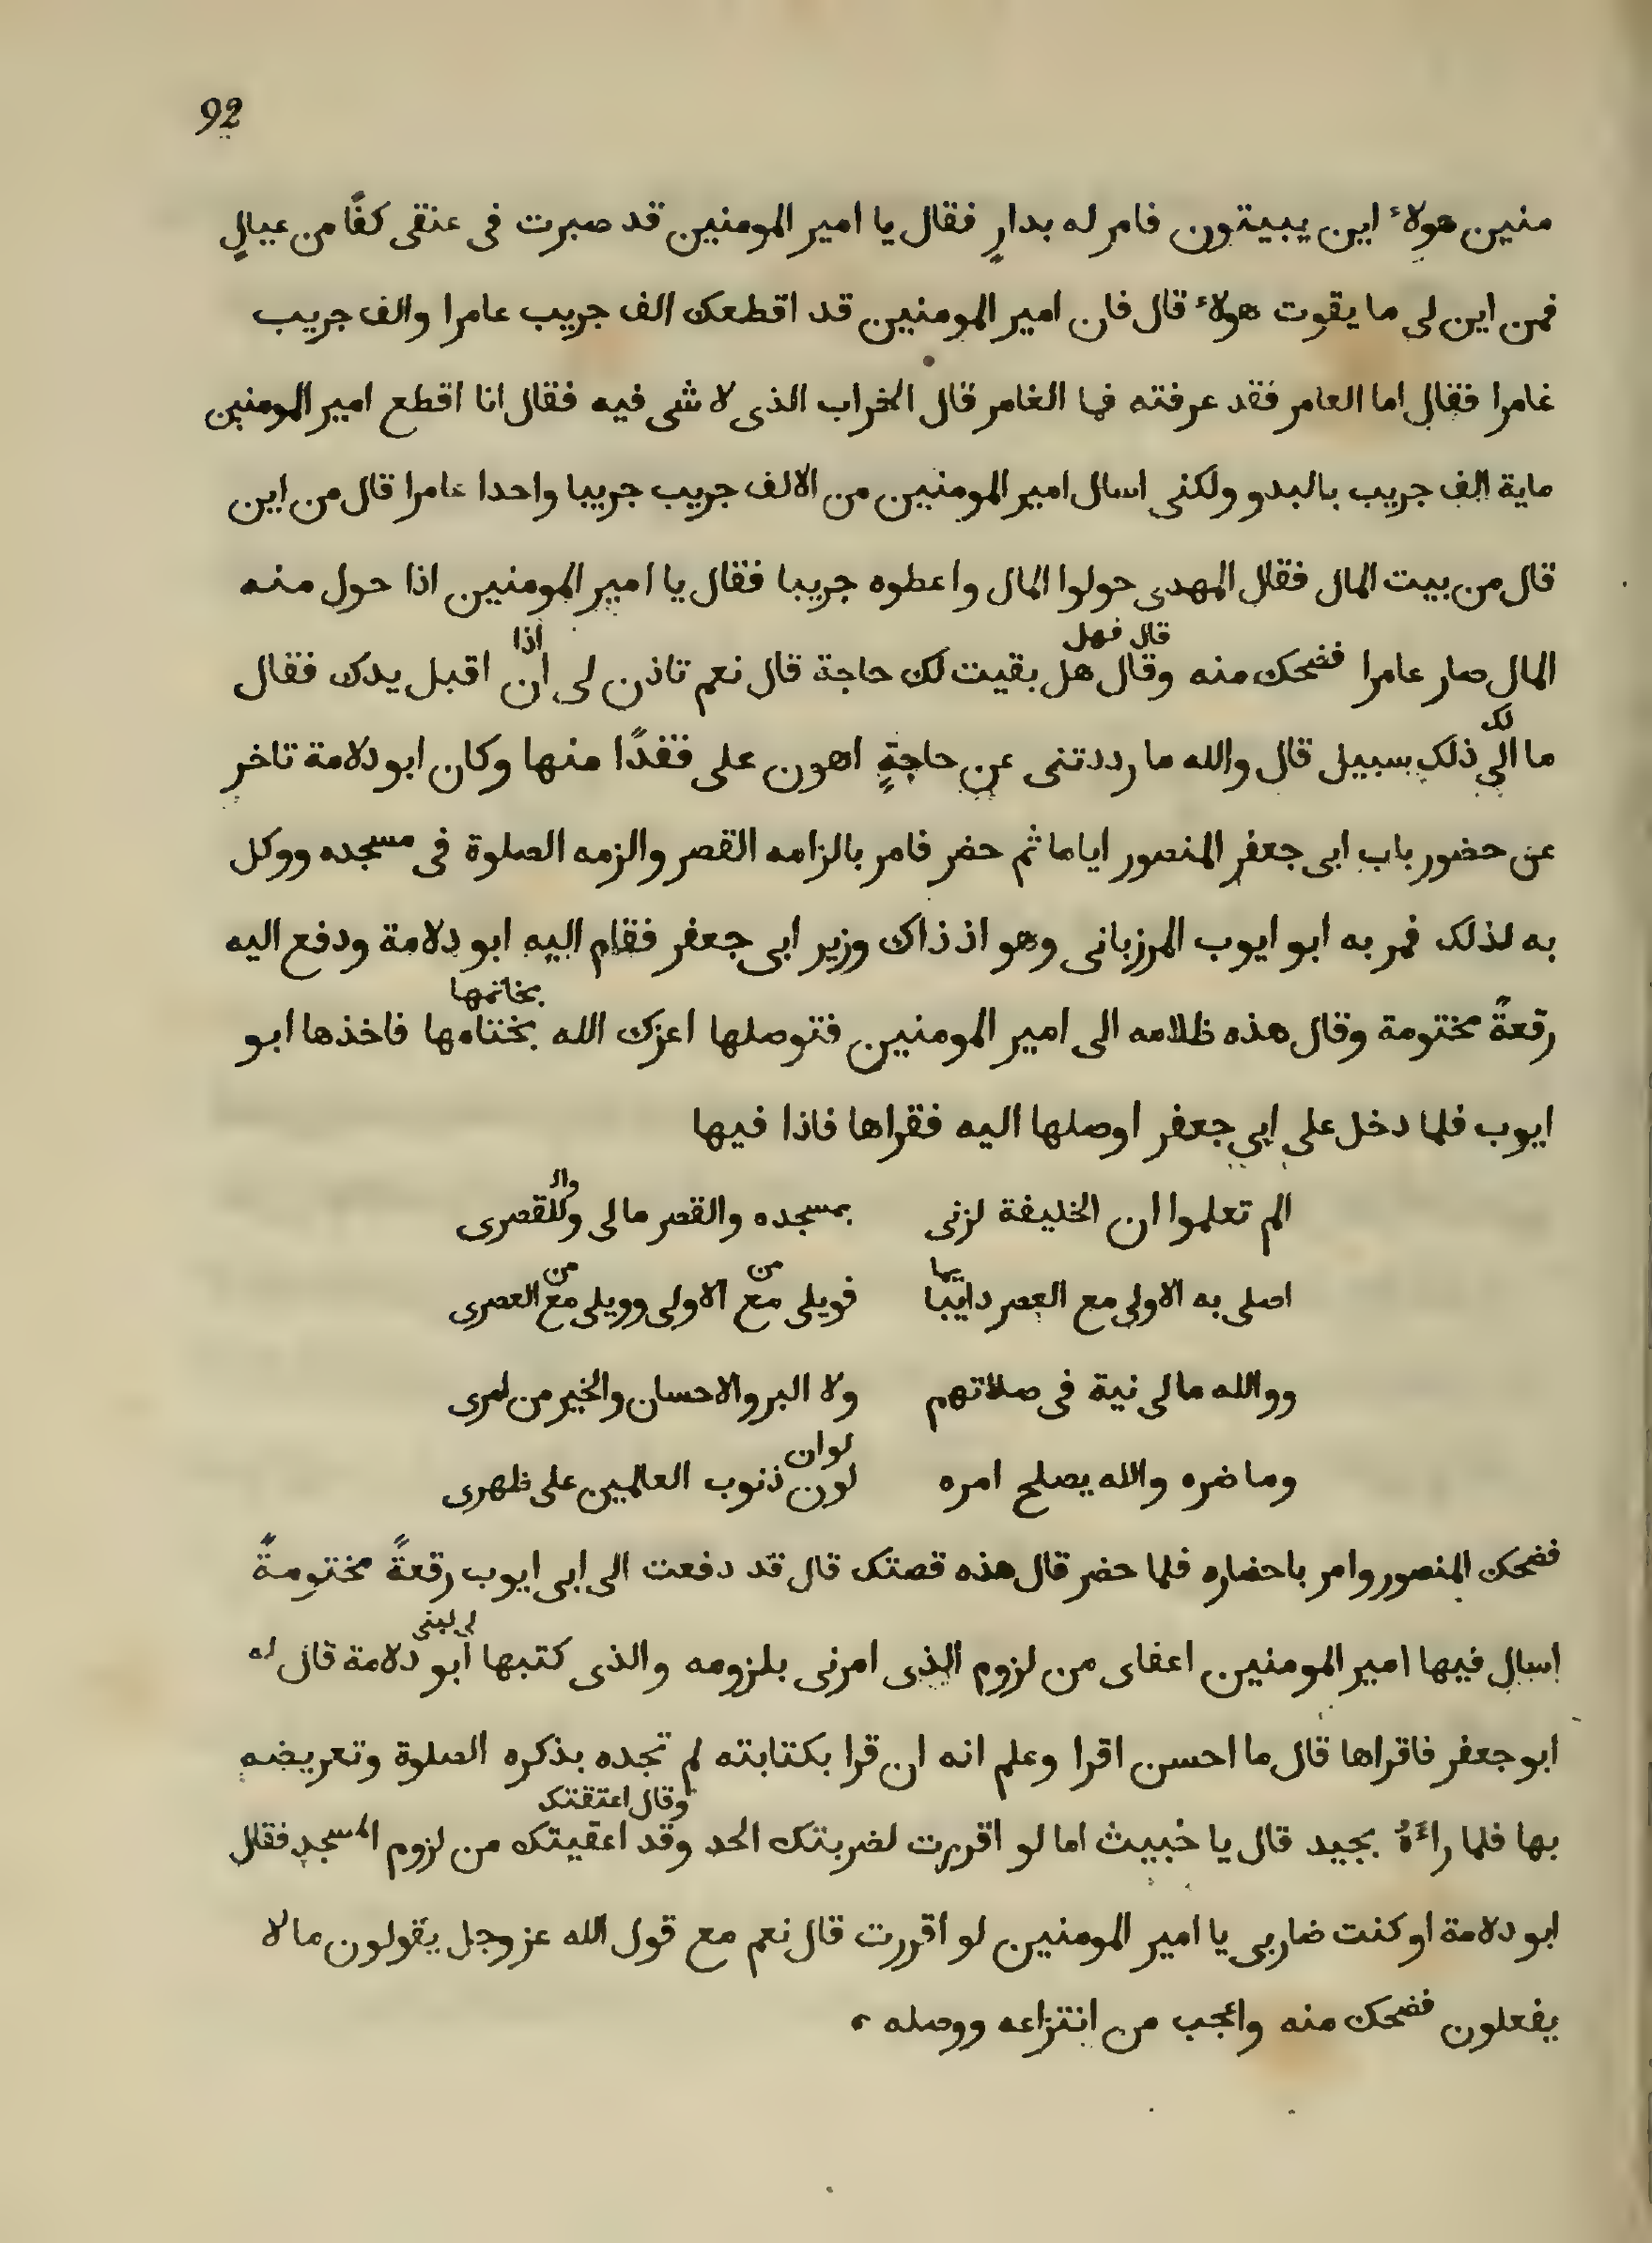 92
منين هولاء اين يبيتون فامر له بدارٍ فقال يا امير المومنين قد صبرت فى عنقى كفًا من عيالٍ
فمن اين لى ما يقوت هولاء قال فان امير المومنين قد اقطعك الف جريب عامرا والف جريب
غامرا فقال اما العامر فقد عرفته فما الغامر قال الخراب الذى لا شى فيه فقال انا اقطع امير المومنين
ماية الف جريب بالبدو ولكنى اسال امير المومنين من الالف جريب جريبا واحدا عامرا قال من اين
قال من بيت المال فقال المهدى حولوا المال واعطوه جريبا فقال يا امير المومنين اذا حول منه
قال فهل اذا
المال صار عامرا فضحك منه وقال هل بقيت لك حاجة قال نعم تاذن لى ان اقبل يدك فقال
لك
ما الى ذلك بسبيل قال والله ما رددتنى عن حاجةٍ اهون على فقدًا منها وكان ابو دلامة تاخر
عن حضور باب ابى جعفر المنصور اياما ثم حضر فامر بالزامه القصر والزمه الصلوة فى مسجده ووكل
به لذلك فمر به ابو ايوب المرزبانى وهو اذ ذاك وزير ابى جعفر فقام اليه ابو دلامة ودفع اليه
بخاتمها
رقعةً مختومة وقال هذه ظلامه الى امير المومنين فتوصلها اعزك الله بختامها فاخذها ابو
ايوب فلما دخل على ابي جعفر اوصلها اليه فقراها فاذا فيها
وال
الم تعلموا ان الخليفة لزنى بمسجده والقصر مالى وللقصرى
يما من من
اصلى به الاولى مع العصر دايبا فويلى مع الاولى وويلى مع العصرى
ووالله مالى نية فى صلاتهم ولا البر والاحسان والخير من امرى
لوان
وما ضره والله يصلح امره لون ذنوب العالمين على ظهرى
فضحك المنصور وامر باحضاره فلما حضر قال هذه قصتك قال قد دفعت الى ابى ايوب رقعةً مختومةً
اسال فيها امير المومنين اعفاى من لزوم الذى امرنى بلزومه والذى كتبها ابو دلامة قال له
ابو جعفر فاقراها قال ما احسن اقرا وعلم انه ان قرا بكتابته لم تجده بذكره الصلوة وتعريضه
وقال اعتقتك
بها فلما راءهُ بجيد قال يا خبيث اما لو اقررت لضربتك الحد وقد اعقيتك من لزوم المسجد فقال
ابو دلامة او كنت ضاربى يا امير المومنين لو اقررت قال نعم مع قول الله عز وجل يقولون ما لا
يفعلون فضحك منه واعجب من انتزاعه ووصله